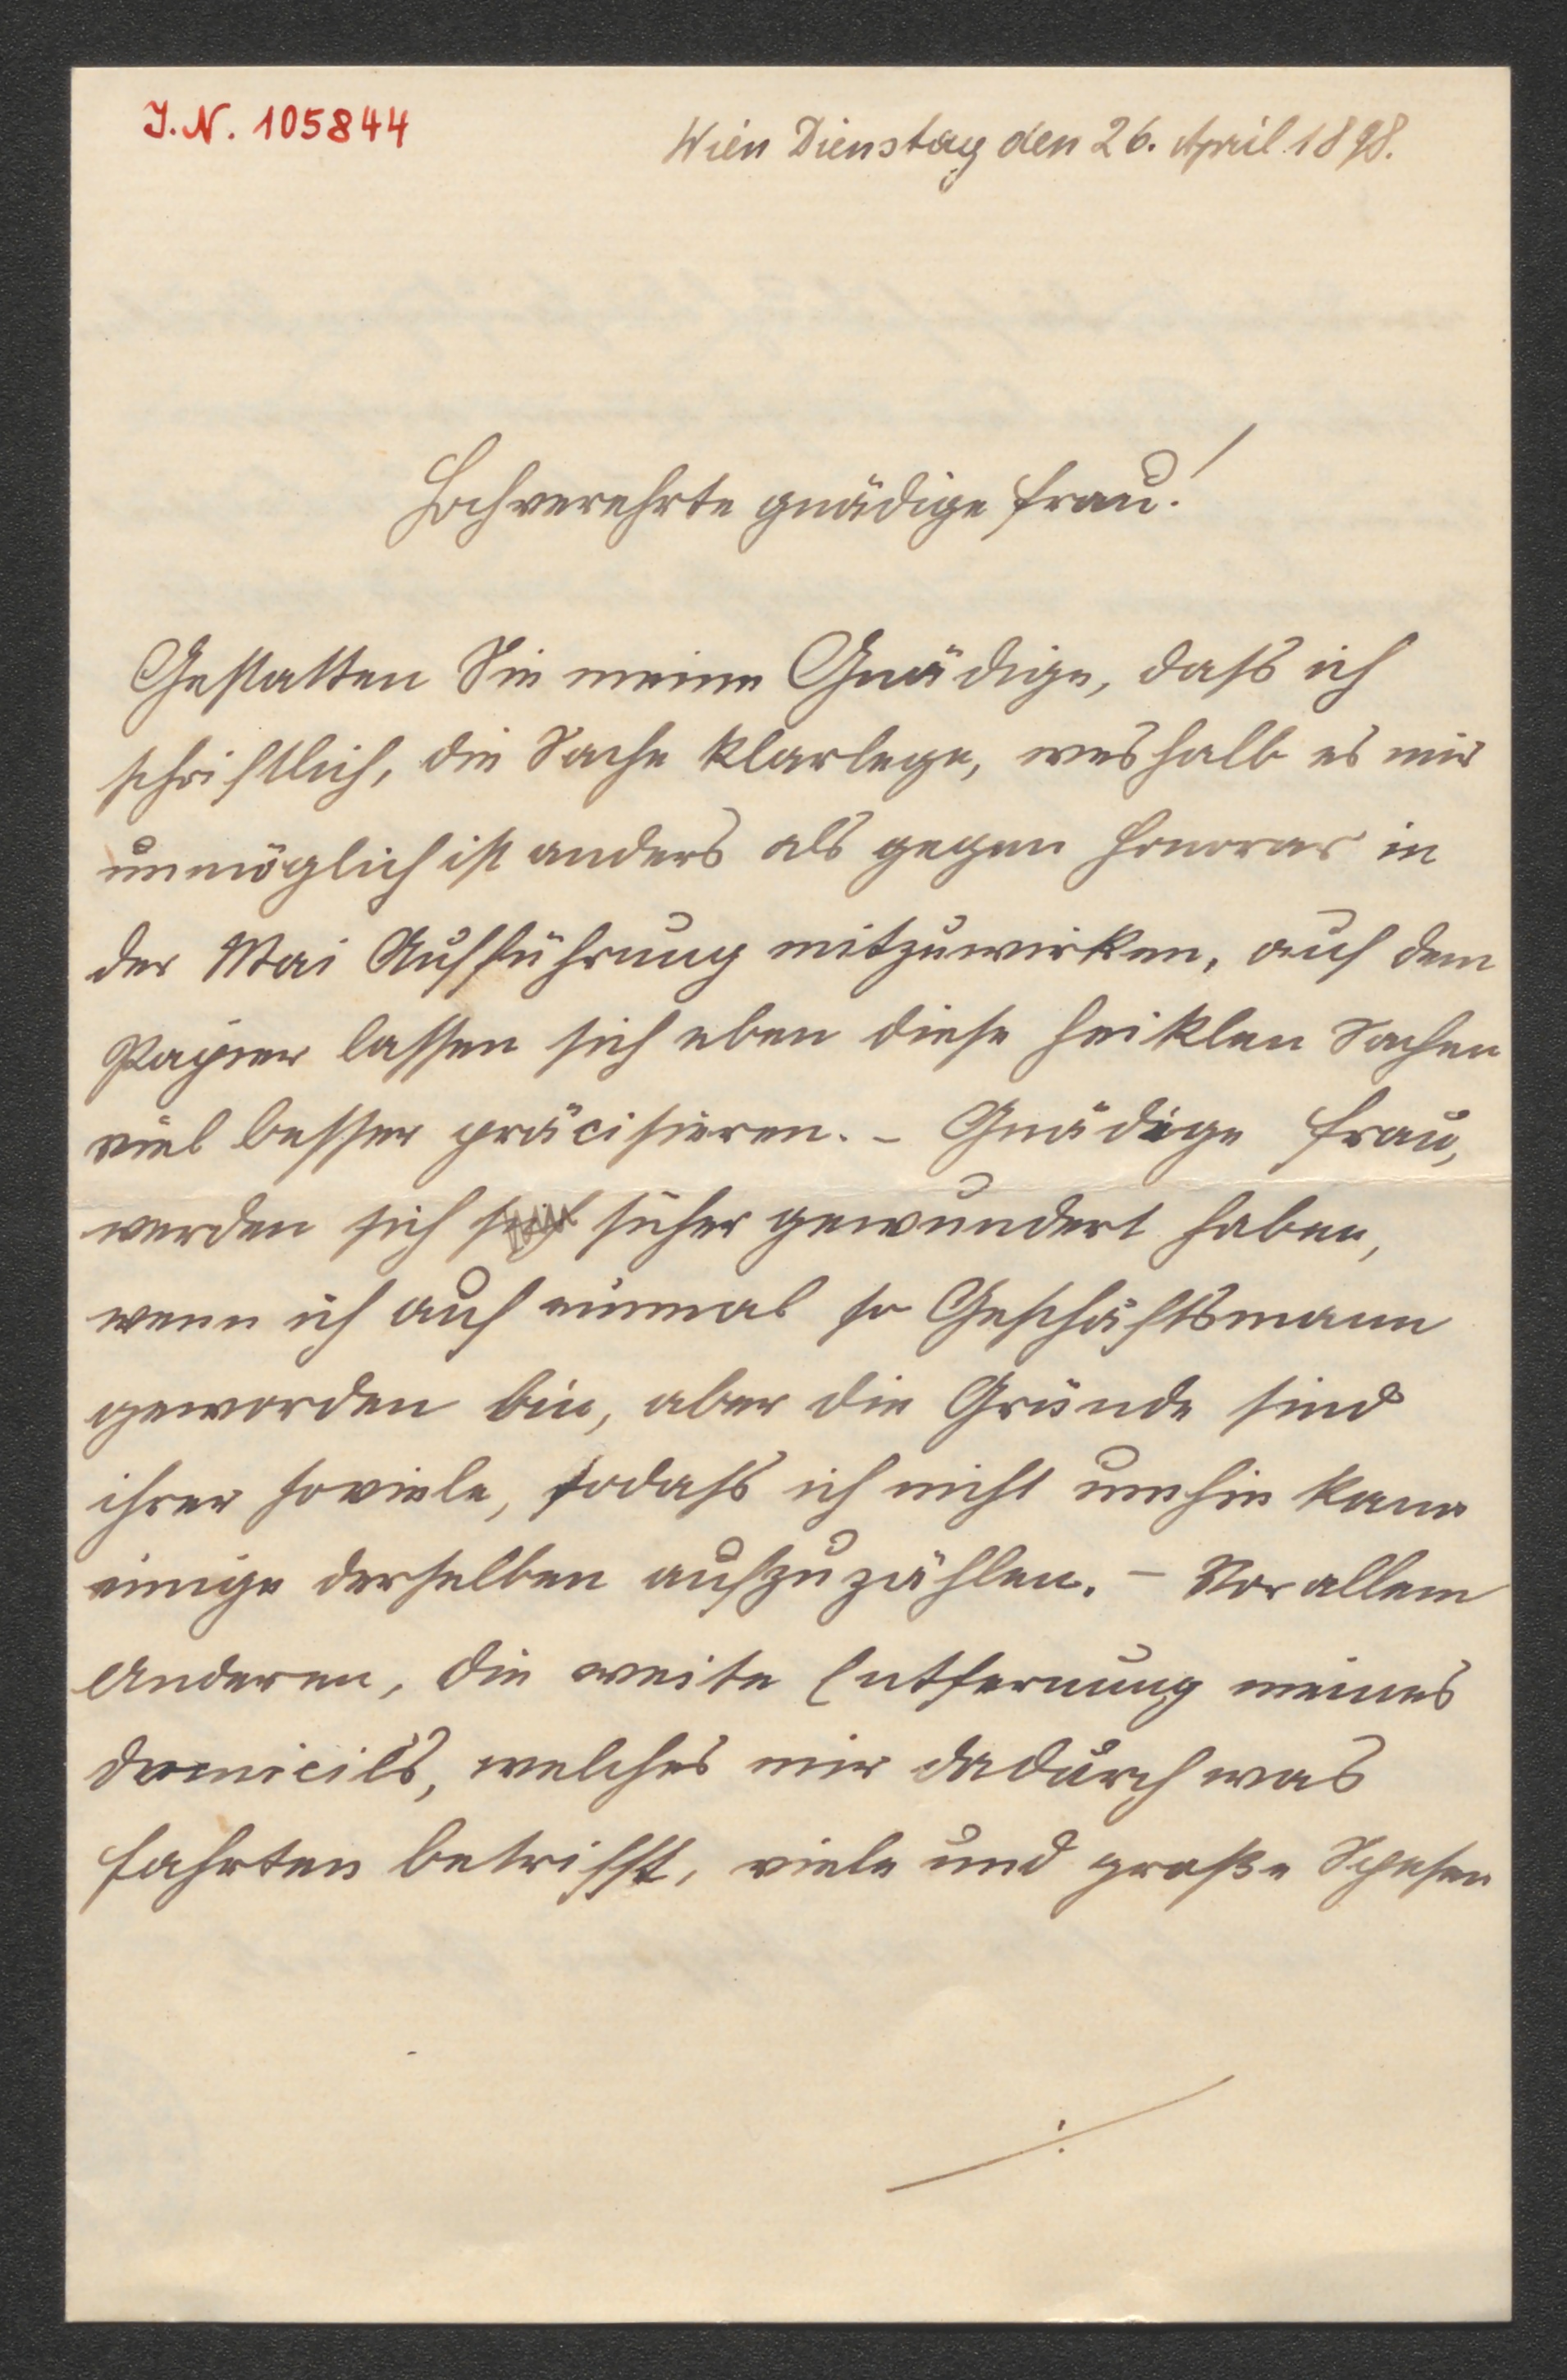 J.N. 105844
Wien Dienstag den 26. April 1898.
Hochverehrte gnädige Frau!
Gestatten Sie meine Gnädige, dass ich
schriftlich, die Sache klarlege, weshalb es mir
unmöglich ist anders als gegen Honorar in
der Mai Aufführung mitzuwirken, auf dem
Papier lassen sich eben diese heiklen Sachen
viel besser präcisieren. – Gnädige Frau,
werden sich sicher gewundert haben,
wenn ich auf einmal so Geschäftsmann
geworden bin, aber die Gründe sind
ihrer soviele, sodass ich nicht umhin kann
einige derselben aufzuzählen. – Vor allem
Anderen, die weite Entfernung meines
Domicils, welches mir dadurch was
Fahrten betrifft, viele und große Spesen